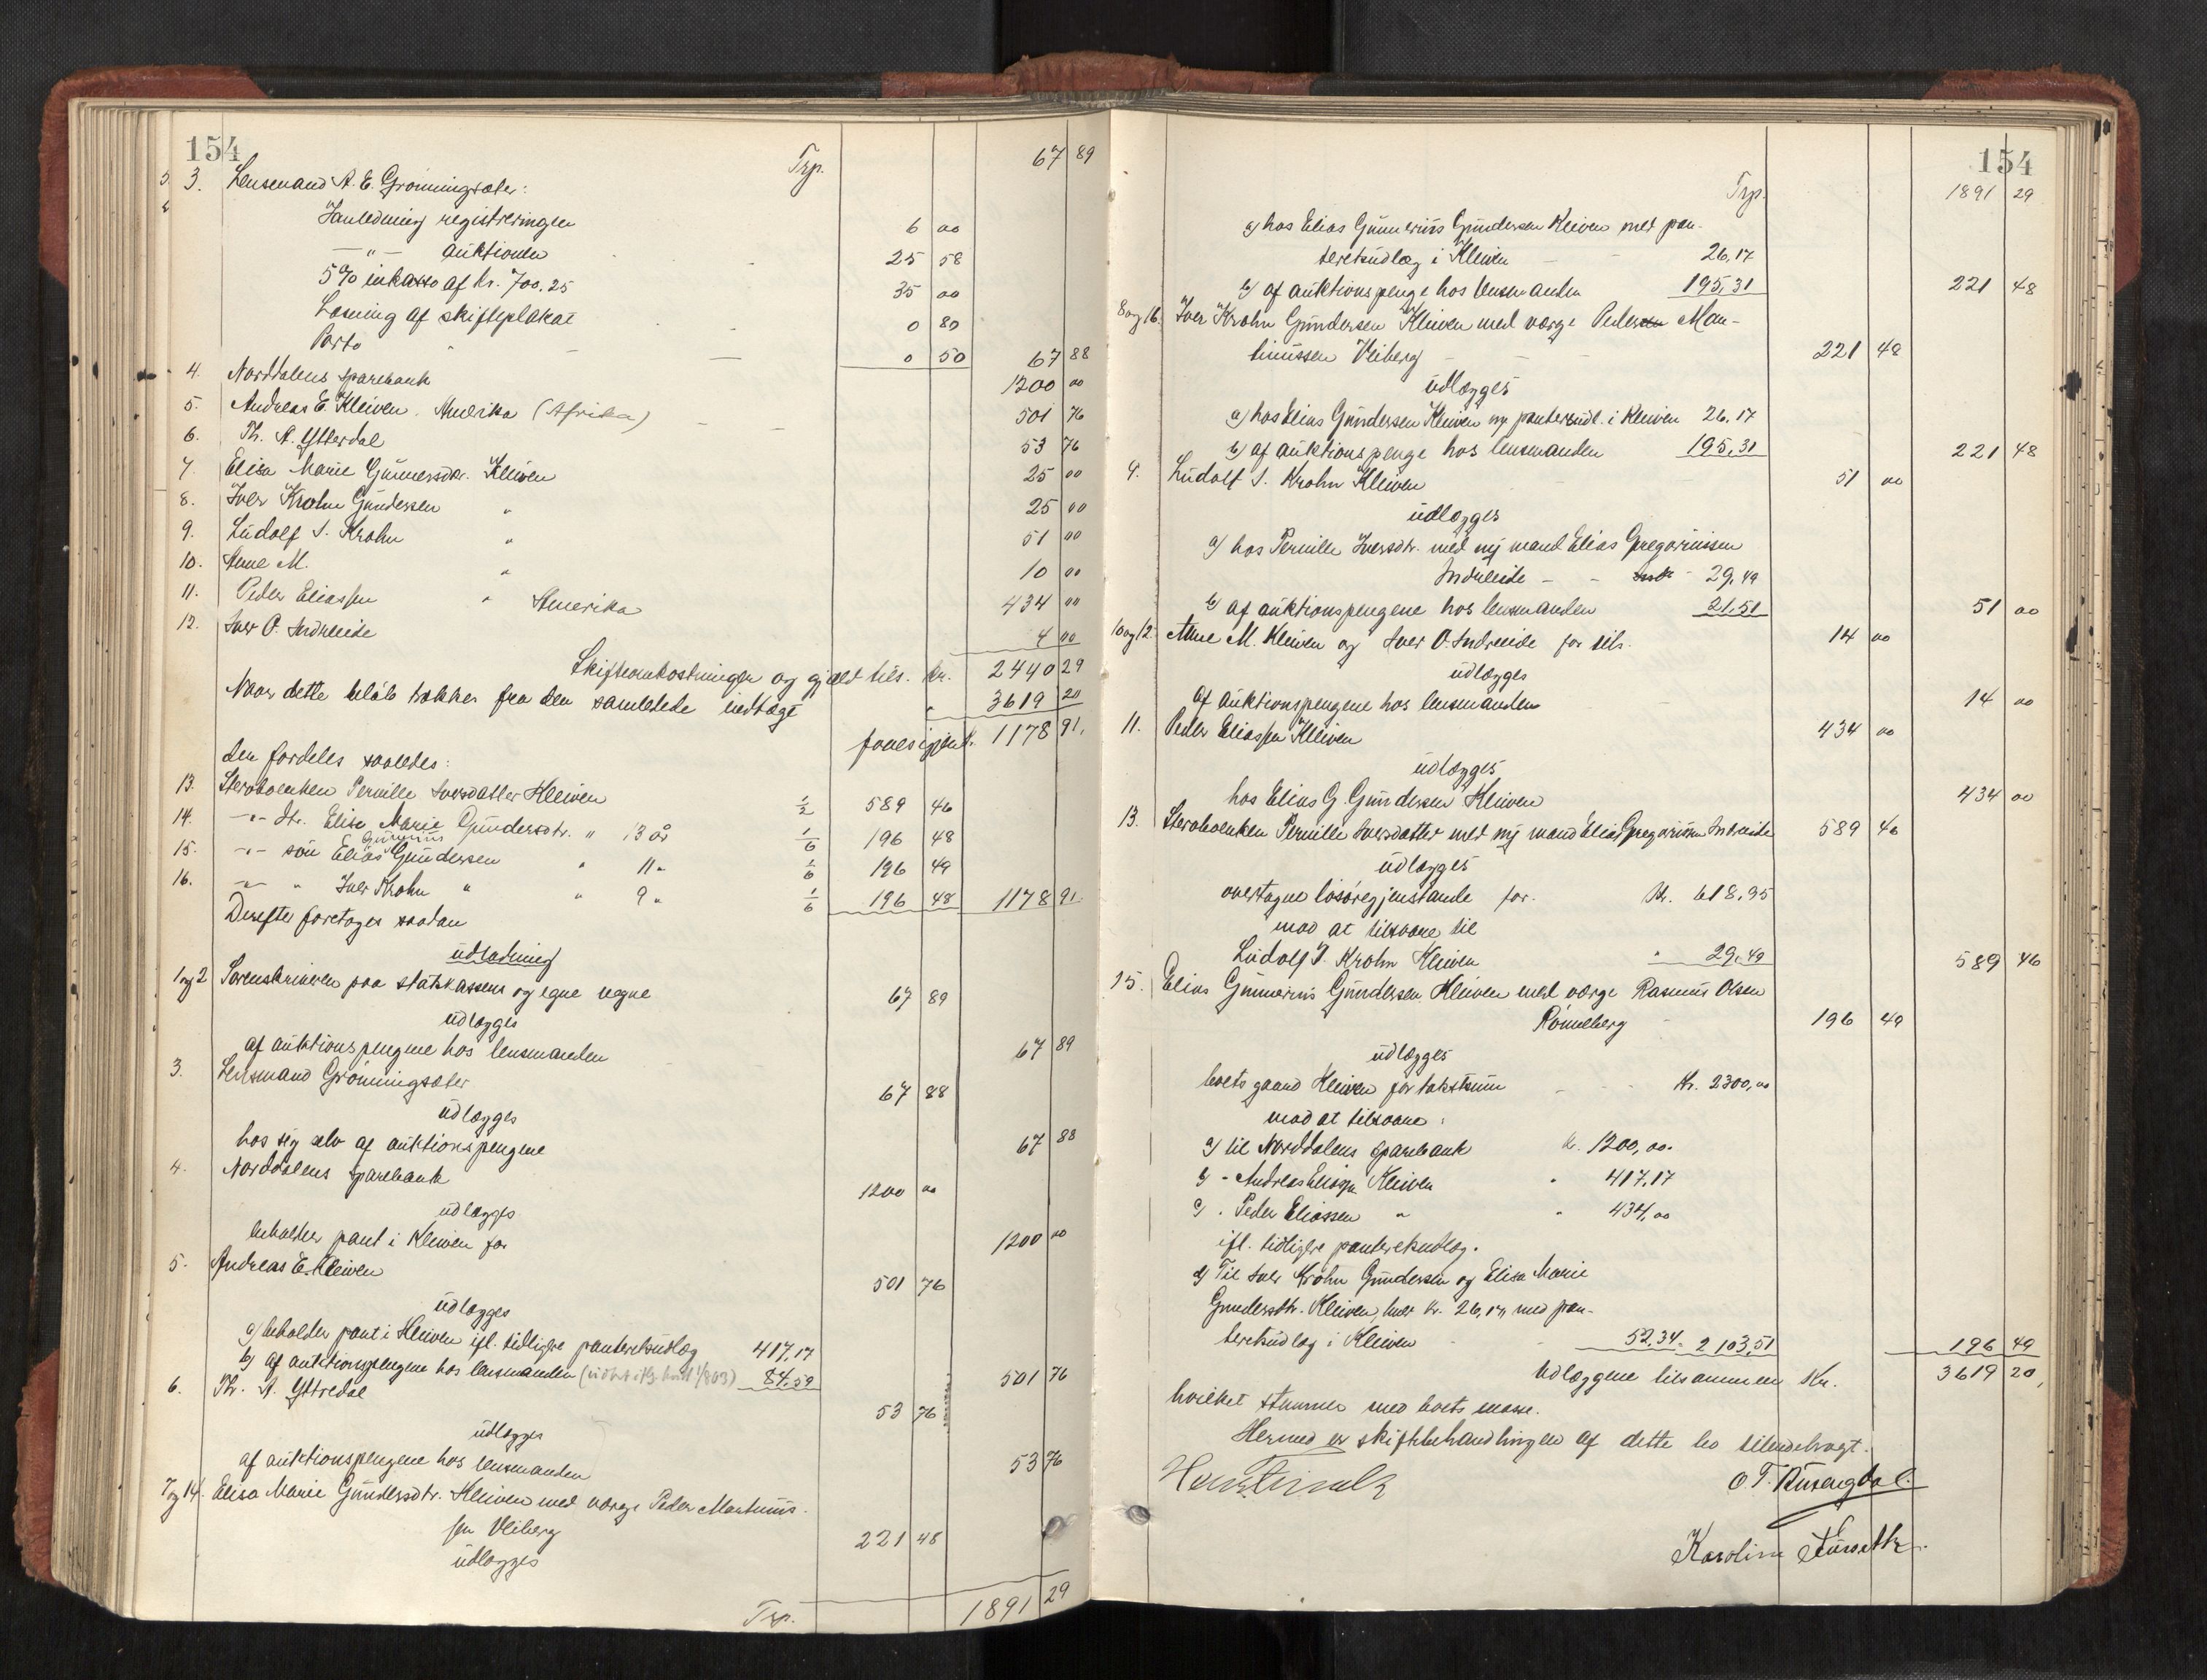 154
Trp. 67 89
3. Lensmand A. E. Grønningsæter:
I anledning registreringen 6 00
—"— auktionen 25 58
5% inkasso af kr. 700.25 35 00
Læsning af skifteplakat 0 80
Porto 0 50 67 88
4. Norddalens sparebank 1200 00
5. Andreas E. Kleiven. Amerika (Afrika) 501 76
6. Th. A. Ytterdal 53 76
7. Elisa Marie Gunnersdtr. Kleiven 25 00
8. Iver Krohn Gundersen " 25 00
9. Ludolf I. Krohn " 51 00
10. Anne M. " 10 00
11. Peder Eliassen " Amerika 434 00
12. Iver O. Indreeide 4 00
Skifteomkostninger og gjæld tils. kr. 2440 29
Naar dette beløb trækkes fra den samlede indtægt " 3619 20
faaes igjen kr. 1178 91.
der fordeles saaledes:
13. Sterboenken Pernille Iversdatter Kleiven 1/2 589 46
14. —"— dtr. Elise Marie Gundersdtr. " 13 år 1/6 196 48
15. —"— søn Elias Gunerius Gundersen " 11 " 1/6 196 49
16. —"— " Iver Krohn " " 9 " 1/6 196 48 1178 91.
Derefter foretages saadan
udlodning
1 og 2 Sorenskriveren paa statskassens og egne vegne 67 89
udlægges
af auktionspengene hos lensmanden 67 89
3. Lensmand Grønningsæter 67 88
udlægges
hos sig selv af auktionspengene 67 88
4. Norddalens sparebank 1200 00
udlægges
beholder pant i Kleiven for 1200 00
5. Andreas E. Kleiven 501 76
udlægges
a) beholder pant i Kleiven ifl. tidligere panteretsudlæg 417,17
b) af auktionspengene hos lensmanden 84,59 501 76
6. Th. A. Yttredal 53 76
udlægges
af auktionspengene hos lensmanden 53 76
7 og 14. Elisa Marie Gundersdtr. Kleiven med værge Peder Martinus-
sen Veiberg 221 48
udlægges
Trp. 1891 29
154
Trp. 1891 29
a) hos Elias Gunnerius Gundersen Kleiven med pan-
teretsudlæg i Kleiven 26,17
b) af auktionspenge hos lensmanden 195,31 221 48
8 og 16. Iver Krohn Gundersen Kleiven med værge Peder Mar-
tinussen Veiberg 221 48
udlægges
a) hos Elias Gundersen Kleiven m. panteretsudl. i Kleiven 26,17
b) af auktionspenge hos lensmanden 195,31 221 48
9. Ludolf I. Krohn Kleiven 51 00
udlægges
a) hos Pernille Iversdtr. med ny mand Elias Gregoriussen
Indreeide - - 29,49
b) af auktionspengene hos lensmanden 21,51 51 00
10 og 12. Anne M. Kleiven og Iver O. Indreeide for tils. 14 00
udlægges
af auktionspengene hos lensmanden 14 00
11. Peder Eliassen Kleiven 434 00
udlægges
hos Elias G. Gundersen Kleiven 434 00
13. Sterboenken Pernille Iversdatter med ny mand Elias Gregoriussen Indreeide 589 46
udlægges
overtagne løsøregjenstande for. Kr. 618,95
mod at tilsvare til
Ludolf I. Krohn Kleiven " 29,49 589 46
15. Elias Gunnerius Gundersen Kleiven med værge Rasmus Olsen
Rønneberg 196 49
udlægges
boets gaard Kleiven for takstsum Kr. 2300,00
mod at tilsvare:
a) til Norddalens sparebank kr. 1200,00.
b) - Andreas Eliassen Kleiven " 417,17
c) - Peder Eliassen " " 434,00
ifl. tidligere panteretsudlæg.
d) Til Iver Krohn Gundersen og Elisa Marie
Gundersdtr. Kleiven, hver kr. 26,17, med pan-
teretsudlæg i Kleiven 52,34 - 2103,51 196 49
Udlæggene tilsammen Kr. 3619 20,
hvilket stemmer med boets masse.
Hermed er skiftebehandlingen af dette bo tilendebragt.
O T. Rusengdal.
Karoline Aurseth.